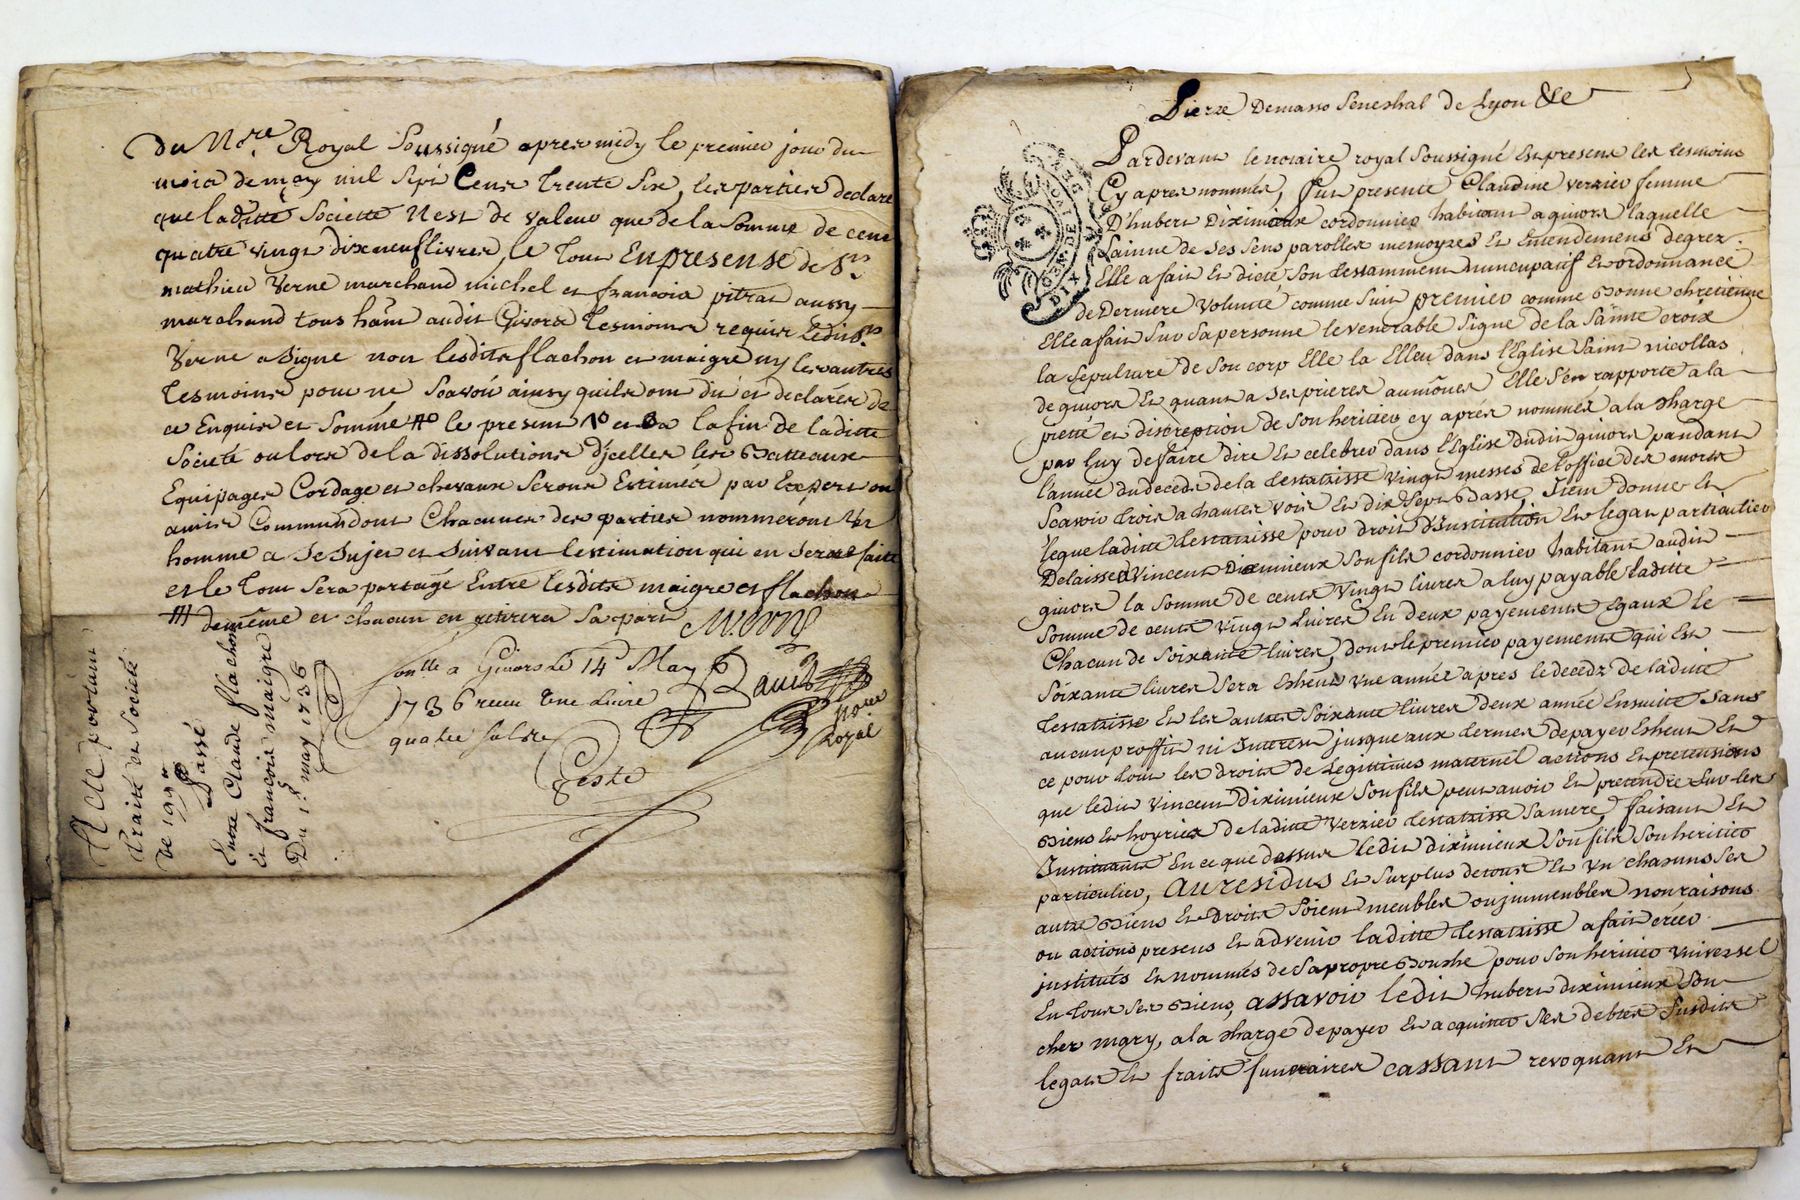 du No.re Royal soussigné apres midy le premier jour du
mois de may mil sept Cent trente six, les parties declare
que laditte Societté n'est de valeur que de la somme de cent
quatre vingt dixneuf livres, le tout En presense de Srs
mathieu Verne marchand michel et françois pitrat aussy
marchand tous habt audit Givors tesmoins requis ledit Sr
Verne a signé non lesdits flachon et maigre ny les autres
tesmoins pour ne scavoir ainsy quils ont dit et declarés de
ce Enquis et sommé le present et a la fin de laditte
Société ou lors de la dissolutions d'jcelles les Batteaux
Equipages Cordage et chevaux seront Estimés par Expert ou
amis Communs dont Chacunes des parties nommeront un
homme a se sujet et suivant l'estimation qui en seras faite
et le tout sera partagé Entre lesdits maigre et flachon
de même et chacun en retirera sa part
Verne
Conlle a Givors le 14 May
1736 recu une livre
quatre sols
David
Nore
Royal
Geste
Acte portant
traité et Société
de 199 #
Passé
Entre Claude flachon
et françois maigre
Du 1er may 1736
Pierre Demasso Seneshal de Lyon &c
Pardevant le notaire royal soussigné Et presens les tesmoins
Cy apres nommés, fut presente Claudine verzier femme
D'hubert Diximieux cordonnier habitant a givors laquelle
Lainne de ses sens parolles memoyres Et Entendemens de grez
Elle a fait Et dicté son testamment nuncupatif Et ordonnance
de Derniere volonté comme suit premier comme Bonne chretienne
Elle a fait sur sa personne le venerable signe de la sainte croix
la sepulture de son corp Elle la Elleu dans l'Eglise saint nicollas
de givors Et quant a ses prieres aumônes Elle s'en rapporte a la
pietté et discreption de son heritier cy aprés nommés a la sharge
par luy de faire dire Et celebrer dans l'Eglise dudit givors pandant
l'année du decéds de la testatrisse vingt messes de l'office des morts
scavoir trois a hautes voix Et dix Sept Basse, Item donne Et
legue laditte testatrisse pour droit d'Institution Et legat particulier
Delaissé a Vincent Diximieux son fils cordonnier habitant audit
givors la somme de cents vingt livres a luy payable laditte
somme de cents vingt livres En deux payements Egaux le
Chacun de soixante livres, dont le premier payements qui Est
soixante livres sera Esheus une année apres le decedz de laditte
testatrisse Et les autre soixante livres deux année Ensuitte sans
aucun proffit ni Interest jusque aux termes de payer Esheut Et
ce pour tout les droits de legittimes maternel actions Et pretensions
que ledit vincent diximieux son fils peut avoir Et pretendre sur les
Biens Et hoyries de laditte Verzier testatrisse sa mere, faisant Et
Instituant En ce que dessus ledit diximieux son fils son heritier
particulier, au residus et surplus de tous Et un chacuns ses
autre Biens Et droits soient meubles ou jmmeubles noms raisons
ou actions presens Et advenir laditte testatrisse a fait créer
jnstitués Et nommés de sa propre Boushe pour son heritier universel
En tous ses Biens, assavoir ledit hubert diximieux son
cher mary, a la sharge de payer Et acquitter ses debtes susdits
legats Et frais funeraires cassant revoquant Et